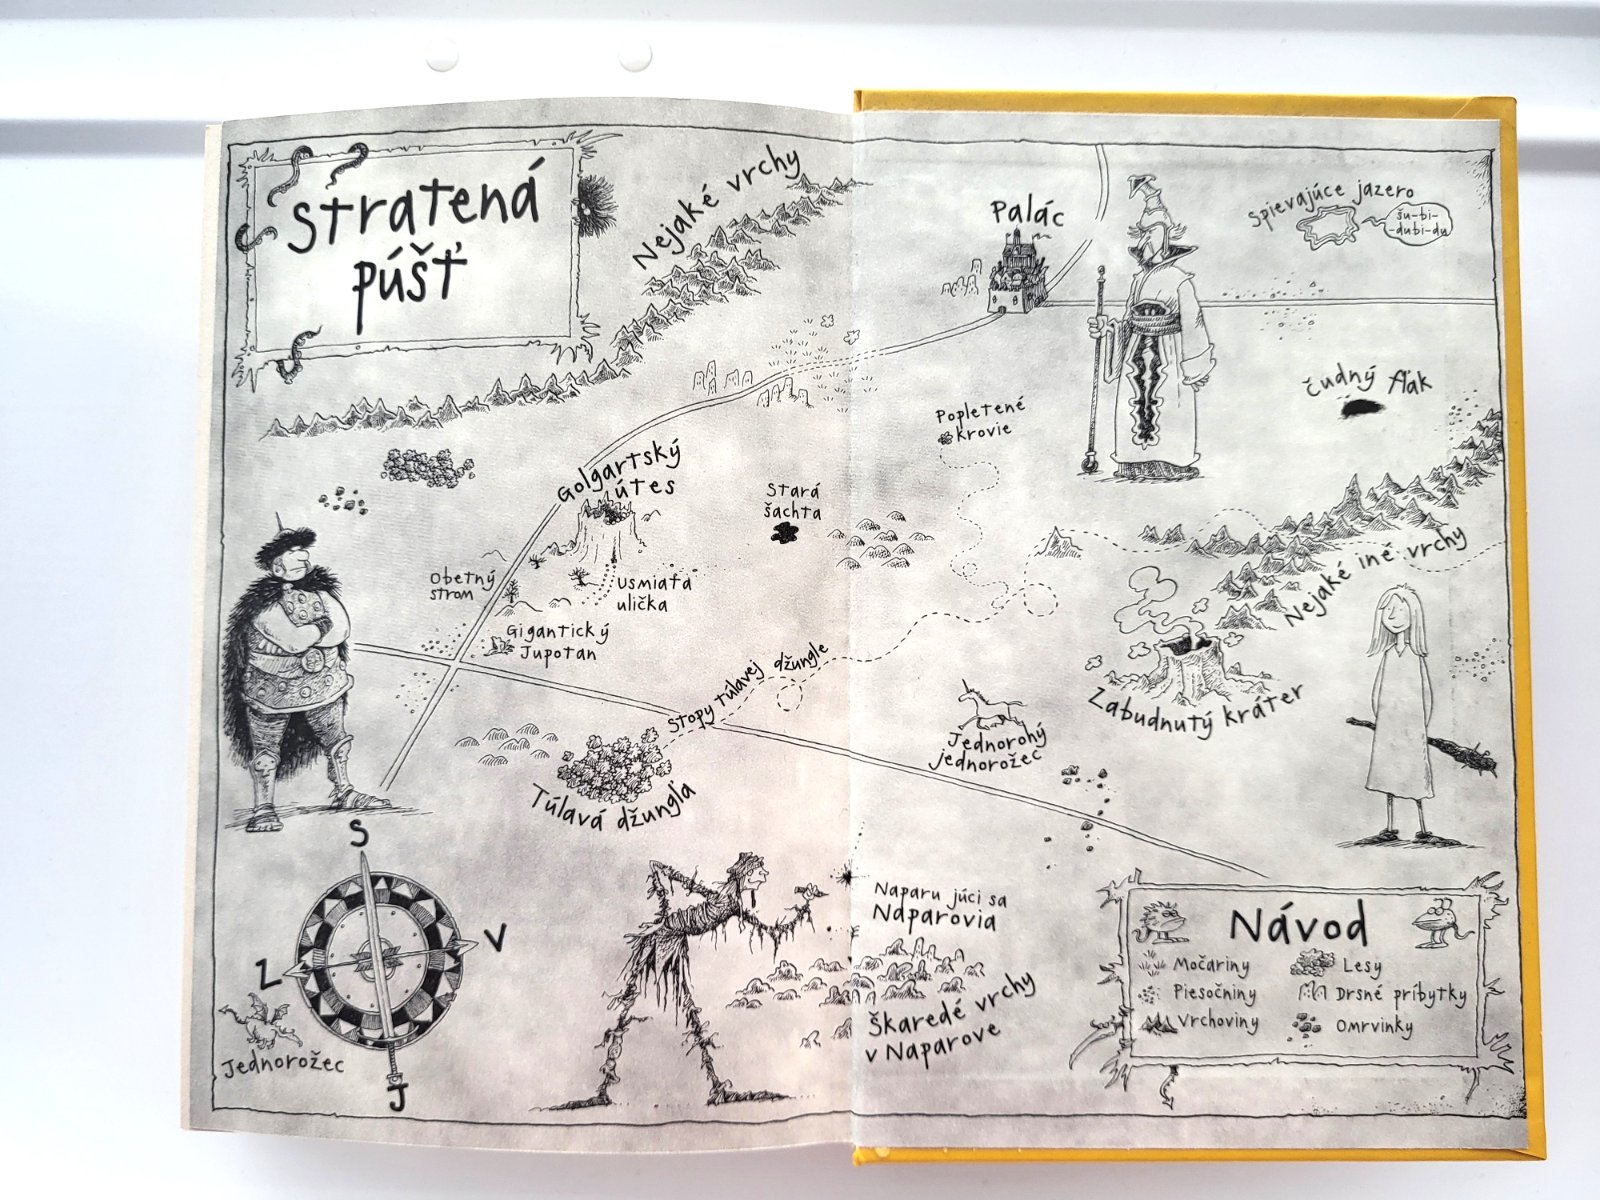 Stratená
púšť
Nejaké vrchy
Palác
Spievajúce jazero
šu-bi-
-dubi-du
čudný fľak
Popletené
krovie
Golgartský
útes
Stará
šachta
Obetný
strom
Usmiata
ulička
Gigantický
Jupotan
Nejaké iné vrchy
Stopy túlavej džungle
Zabudnutý kráter
Jednorohý
jednorožec
Túlavá džungľa
S
V
Z
J
Jednorožec
Naparu júci sa
Naparovia
Škaredé vrchy
v Naparove
Návod
Močariny
Lesy
Piesočniny
Drsné príbytky
Vrchoviny
Omrvinky